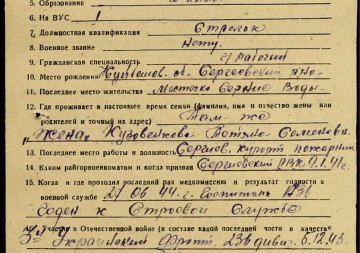 5. Образование
6. На ВУС 1
7. Должностная квалификация Стрелок
8. Военное звание
9. Гражданская специальность рабочий
10. Место рождения Куйбышев. об. Сергиевский р-но
11. Последнее место жительства местечко Серные Воды.
12. Где проживает в настоящее время семья (фамилия, имя и отчество жены или
родителей и точный их адрес) Там-же
жена Кузовенкова Семеновна
13. Последнее место работы и должность Сергиев. курорт пожарник
14. Каким райгорвоенкоматом и когда призван Сергиевский РВК 9.1.41 г.
15. Когда и где проходил последний раз медкомиссию и результат годности к
военной службе 29 06 44 г. Госпиталь
Годен к Строевой Службе
Участие в Отечественной войне (в составе какой последней части и в качестве
Украинский Фронт. 236 дивиз. 6.12.43.